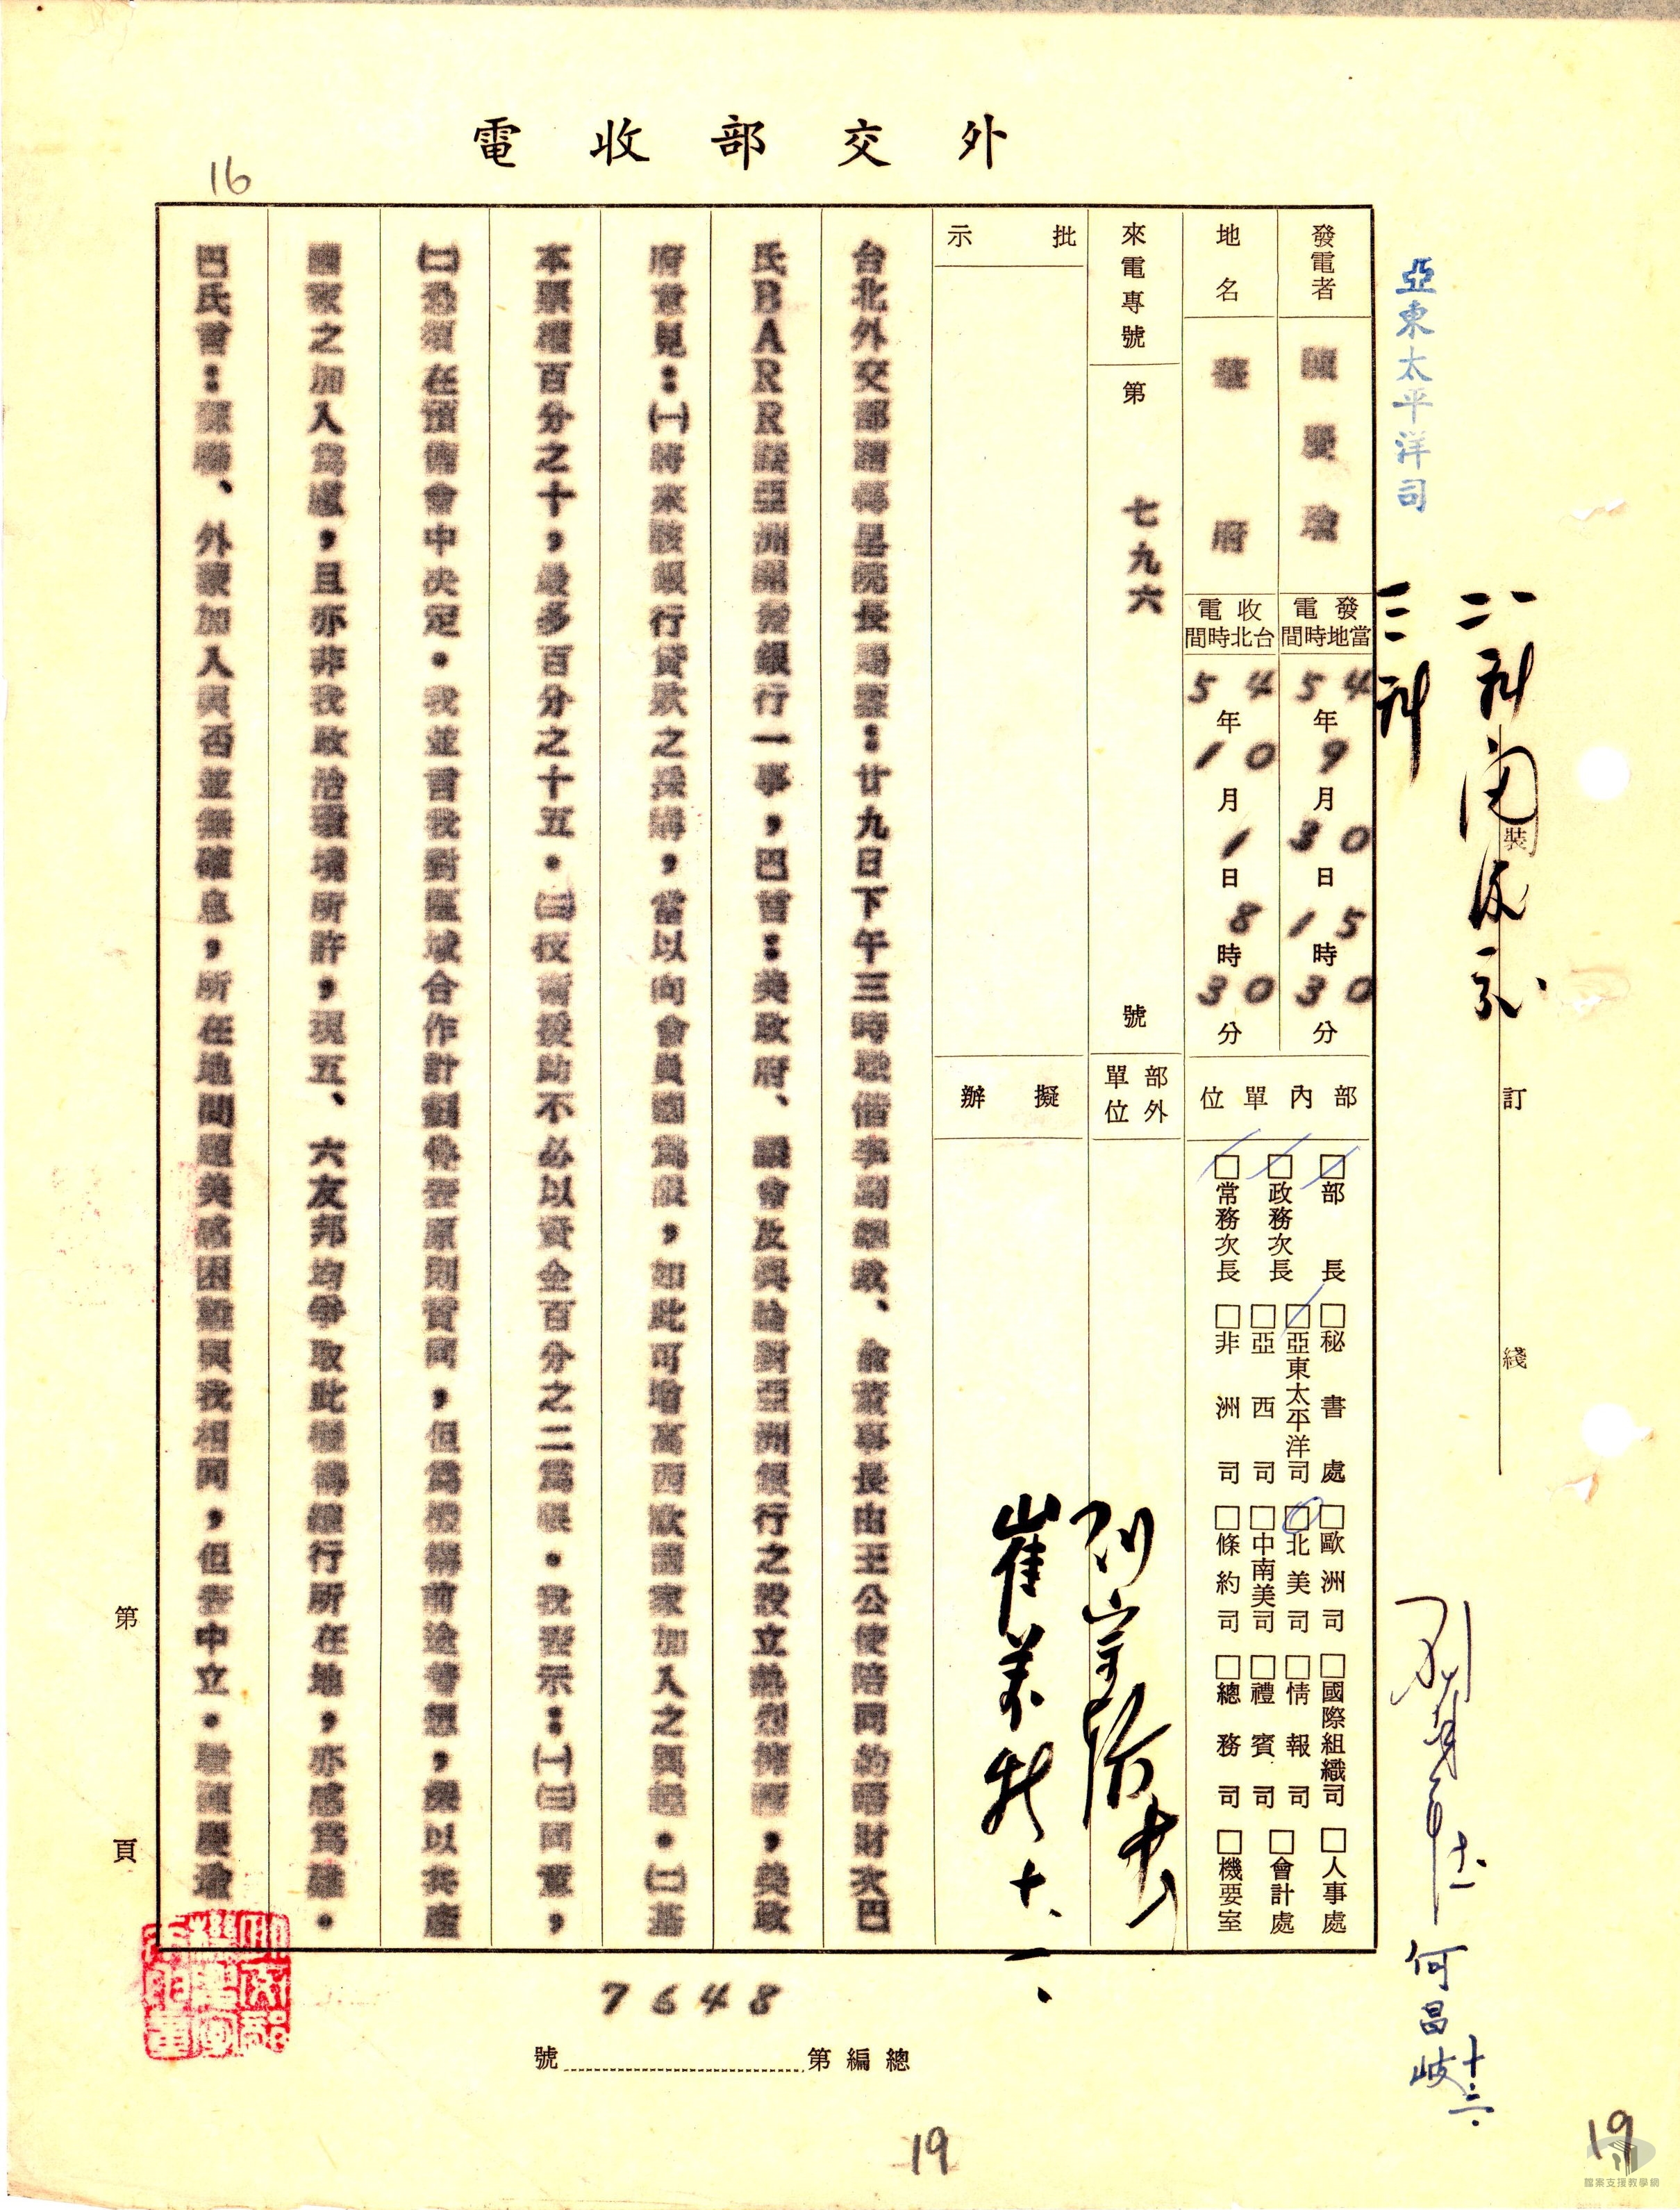 外交部收電
16
亞東太平洋司
一二科
三科
裝
訂
綫
發電者
地名 華府
發電
當地時間
54年9月30日15時30分
收電
台北時間
54年10月1日8時30分
來電專號 第七九六號
批示
部內單位
部外單位
擬辦
□部長
□政務次長
□常務次長
□秘書處
□亞東太平洋司
□亞西司
□非洲司
□歐洲司
□北美司
□中南美司
□條約司
□國際組織司
□情報司
□禮賓司
□總務司
□人事處
□會計處
□機要室
十、一、
何昌岐 十、二、
台北外交部請轉星院長賜鑒：廿九日下午三時偕李副總裁、俞董事長由王公使陪同約晤財次巴
氏BARR談亞洲開發銀行一事，巴首：美政府、議會及輿論對亞洲銀行之設立熱烈擁護，美政
府意見：㈠將來該銀行貸款之採購，當以向會員國為限，如此可增高西歐國家加入之興趣。㈡基
本票權百分之十，最多百分之十五。㈢技術援助不必以資金百分之二為限。我表示：㈠㈢同意，
㈡恐須在預備會中決定。我並言我對區域合作計劃恪於原則贊同，但為機構前途著想，與以共產
國家之加入為慮，且亦非我政治環境所許，現五、六友邦均爭取此種機構行所在地，亦感為難。
巴氏曾：蘇聯、外蒙加入與否並無確息，所在地問題美感困難與我相同，但守中立。
7648
總編第 號
第 頁
19
19
檔案支援教學網